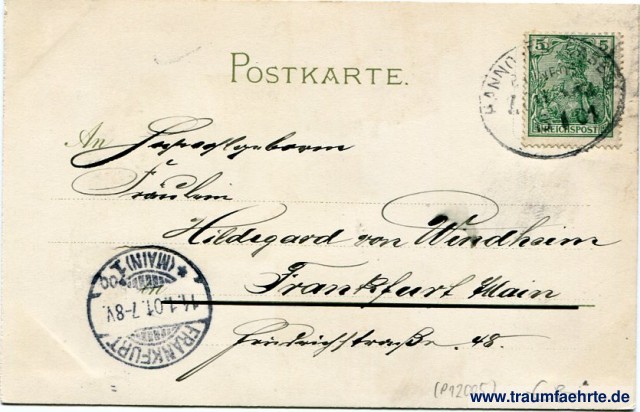 POSTKARTE.
5 5
REICHSPOST
HANNO
An Hochwohlgeboren
Fräulein
Hildegard von Windheim
Frankfurt Main
Friedrichstraße 48.
FRANKFURT
(MAIN) 1
14.1.01.7-8V.
(P12005)
www.traumfaehrte.de